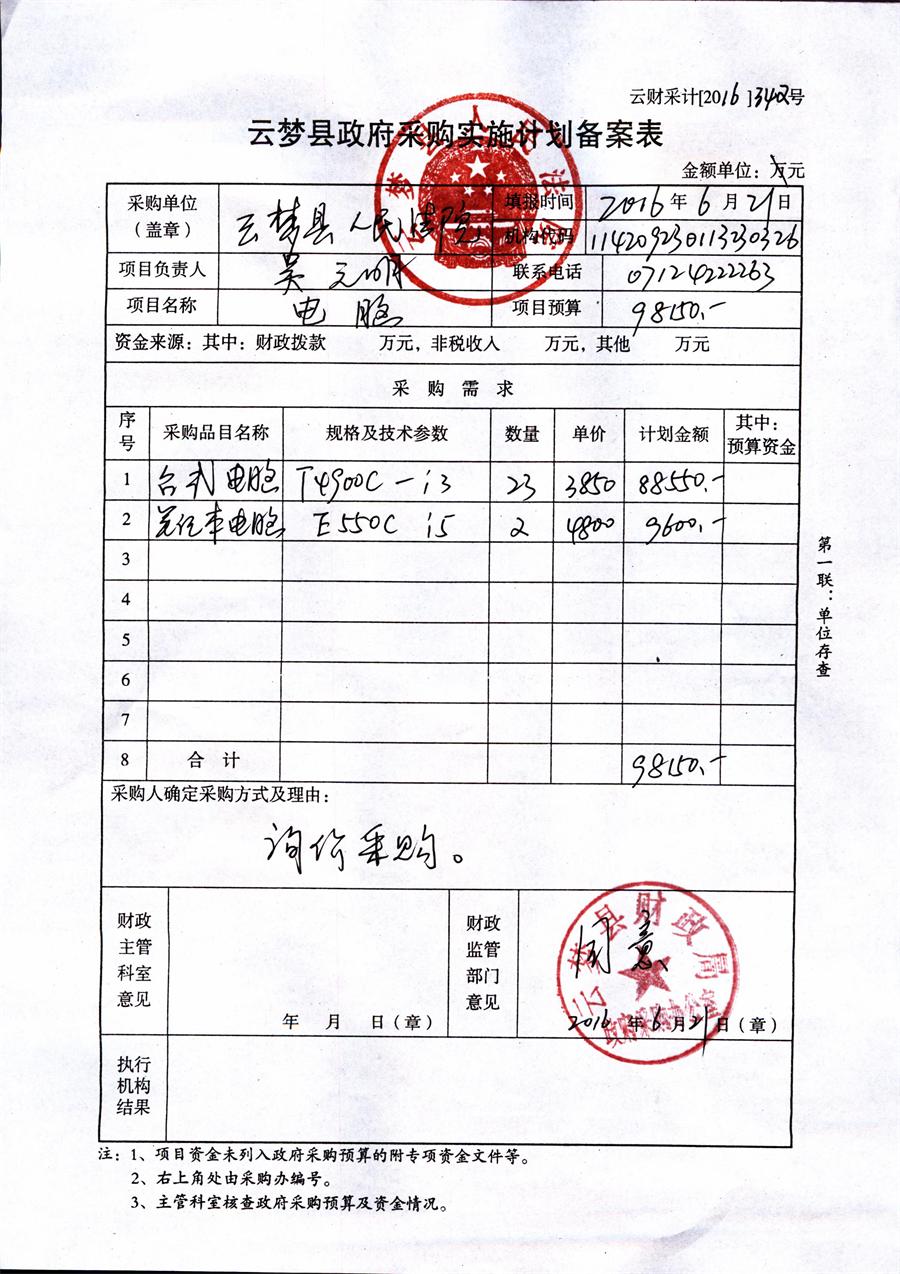 云财采计[2016]342号
云梦县政府采购实施计划备案表
金额单位：万元
采购单位（盖章） 云梦县人民法院 填报时间 2016年6月21日
机构代码 114209230113230326
项目负责人 吴元明 联系电话 07124222263
项目名称 电脑 项目预算 98150.-
资金来源：其中：财政拨款 万元，非税收入 万元，其他 万元
采购需求
序号 采购品目名称 规格及技术参数 数量 单价 计划金额 其中：预算资金
1 台式电脑 T4900C-i3 23 3850 88550.-
2 笔记本电脑 E550C i5 2 4800 9600.-
3
4
5
6
7
8 合计 98150.-
采购人确定采购方式及理由：
询价采购。
财政主管科室意见 年 月 日（章）
财政监管部门意见 同意 2016年6月21日（章）
云梦县财政局
政府采购办公室
执行机构结果
注：1、项目资金未列入政府采购预算的附专项资金文件等。
2、右上角处由采购办编号。
3、主管科室核查政府采购预算及资金情况。
第一联：单位存查